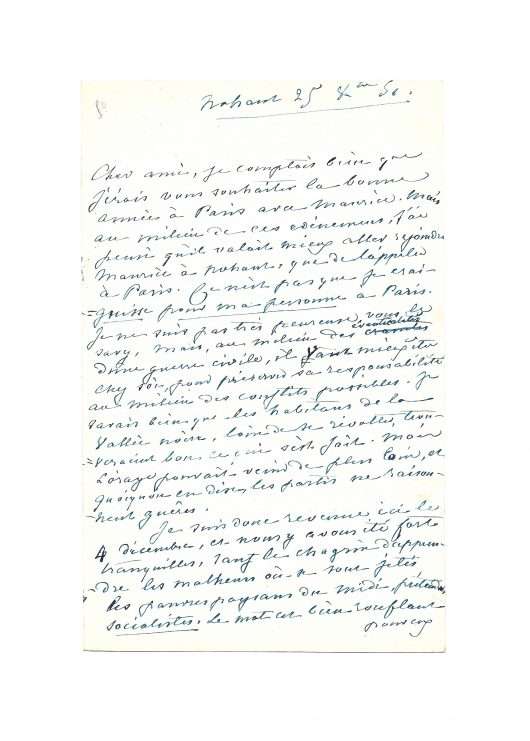 Nohant 25 Xbre 51.
Cher ami, je comptais bien que
j'irais vous souhaiter la bonne
année à Paris avec Maurice. Mais
au milieu de ces événemens, j'ai
pensé qu'il valait mieux aller rejoindre
Maurice à Nohant, que de l'appeler
à Paris. Ce n'est pas que je crai-
=gnisse pour ma personne à Paris.
Je ne suis pas très peureuse, vous le
savez, mais, au milieu des éventualités
d'une guerre civile, il vaut mieux être
chez soi, pour préserver sa responsabilité
au milieu des conflits possibles. Je
savais bien que les habitans de la
Vallée noire, loin de se révolter, trou-
=veraient bon ce qui s'est fait. Mais
l'orage pouvait venir de plus loin, et
quoiqu'on en dise, les partis ne raison-
=nent guères.
Je suis donc revenue ici le
4 décembre, et nous y avons été fort
tranquilles, sauf le chagrin d'appren-
dre les malheurs où se sont jetés
les pauvres paysans du midi, prétendus
socialistes. Le mot est bien ronflant
pour eux